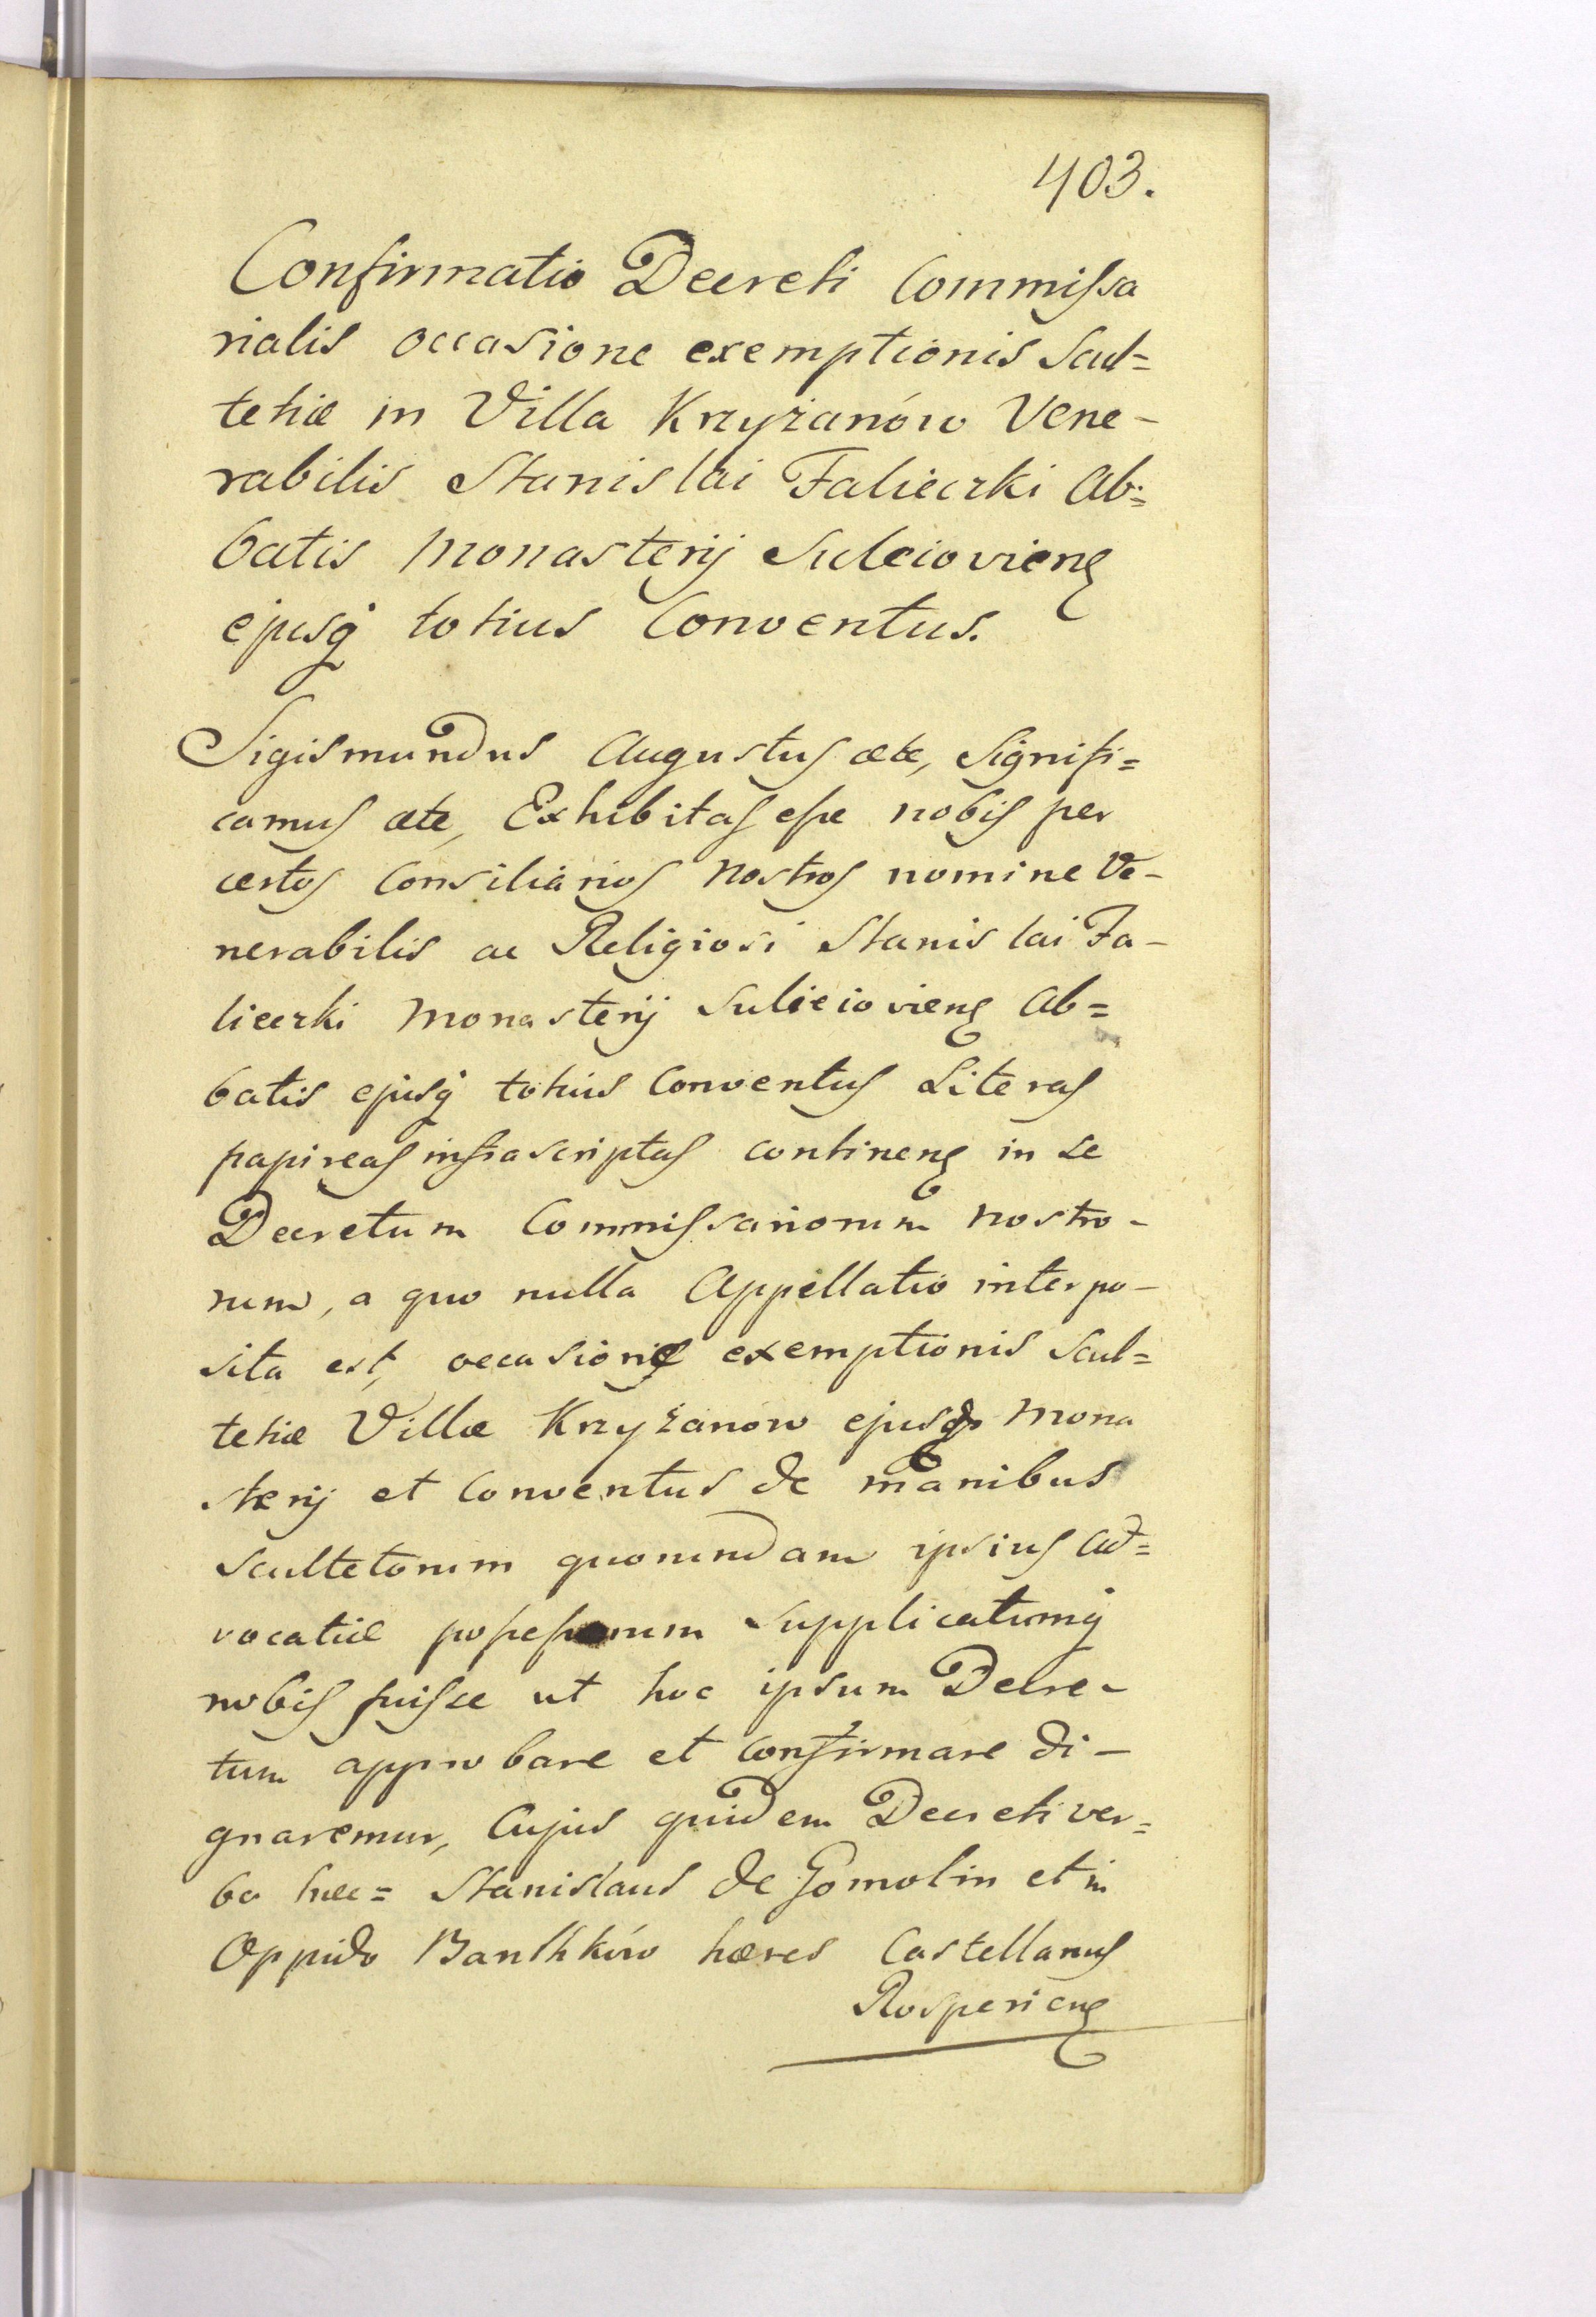 403.
Confirmatio Decreti Commiſsa
rialis occasione exemptionis Scul=
tetiæ in Villa Krzyżanów Vene-
rabilis Stanislai Falięczki Ab=
batis Monasterij Suleioviens
ejusq totius Conventus.
Sigismundus Augustus etc, Signifi=
camus etc, Exhibitas eſse nobis per
certos Consiliarios Nostros nomine Ve-
nerabilis ac Religiosi Stanislai Fa-
lieczki Monasterij Sulieioviens Ab=
batis ejusq totius Conventus Literas
papireas infrascriptas continens in se
Decretum Commiſsariorum nostro-
rum, a quo nulla Appellatio interpo-
sita est, occasione exemptionis Scul=
tetiæ Villæ Krzyżanów ejusd Mona
sterij et Conventus de manibus
Scultetorum quorundam ipsius Ad=
vocatiæ poſseſsorum Supplicatumq
nobis fuiſse ut hoc ipsum Decre-
tum approbare et confirmare di-
gnaremur, Cujus quidem Decreti ver=
ba hæc= Stanislaus de Gomolin et in
Oppido Banthków hæres Castellanus
Rosperiens